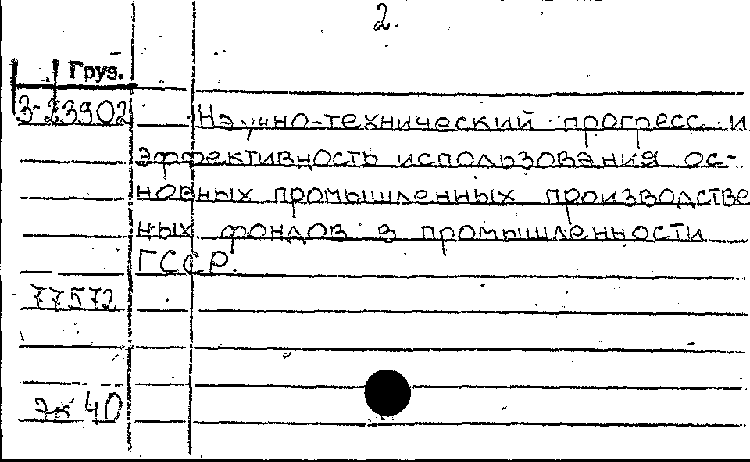 2.
Груз.
3-23902
Научно-технический прогресс и
эффективность использования ос-
новных промышленных производстве
ных фондов в промышленности
ГССР.
77572
эк 40